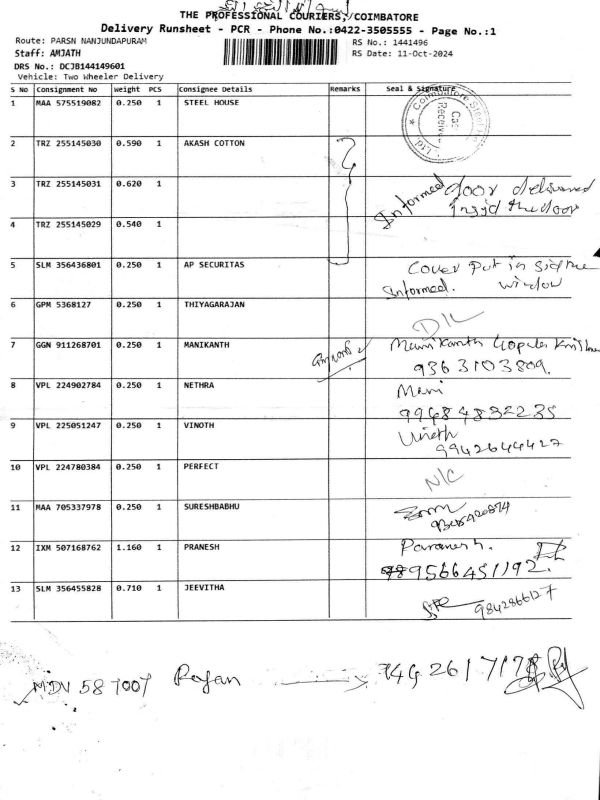 THE PROFESSIONAL COURIERS,/COIMBATORE
Delivery Runsheet - PCR - Phone No.:0422-3505555 - Page No.:1
Route: PARSN NANJUNDAPURAM
RS No.: 1441496
Staff: AMJATH
RS Date: 11-Oct-2024
DRS No.: DCJB144149601
Vehicle: Two Wheeler Delivery
S No Consignment No Weight PCS Consignee Details Remarks Seal & Signature
1 MAA 575519082 0.250 1 STEEL HOUSE
2 TRZ 255145030 0.590 1 AKASH COTTON
3 TRZ 255145031 0.620 1 Informed door delivered
insid the door
4 TRZ 255145029 0.540 1
5 SLM 356436801 0.250 1 AP SECURITAS Cover Put in side the
Informed. window
6 GPM 5368127 0.250 1 THIYAGARAJAN D/L
7 GGN 911268701 0.250 1 MANIKANTH Manikanth Gopala
9363103809.
8 VPL 224902784 0.250 1 NETHRA Mani
99484832235
9 VPL 225051247 0.250 1 VINOTH Vineth
9942644427
10 VPL 224780384 0.250 1 PERFECT N/C
11 MAA 705337978 0.250 1 SURESHBABHU
12 IXM 507168762 1.160 1 PRANESH Paranesh.
9566451192.
13 SLM 356455828 0.710 1 JEEVITHA 9842866127
MDV 587007 Rajan